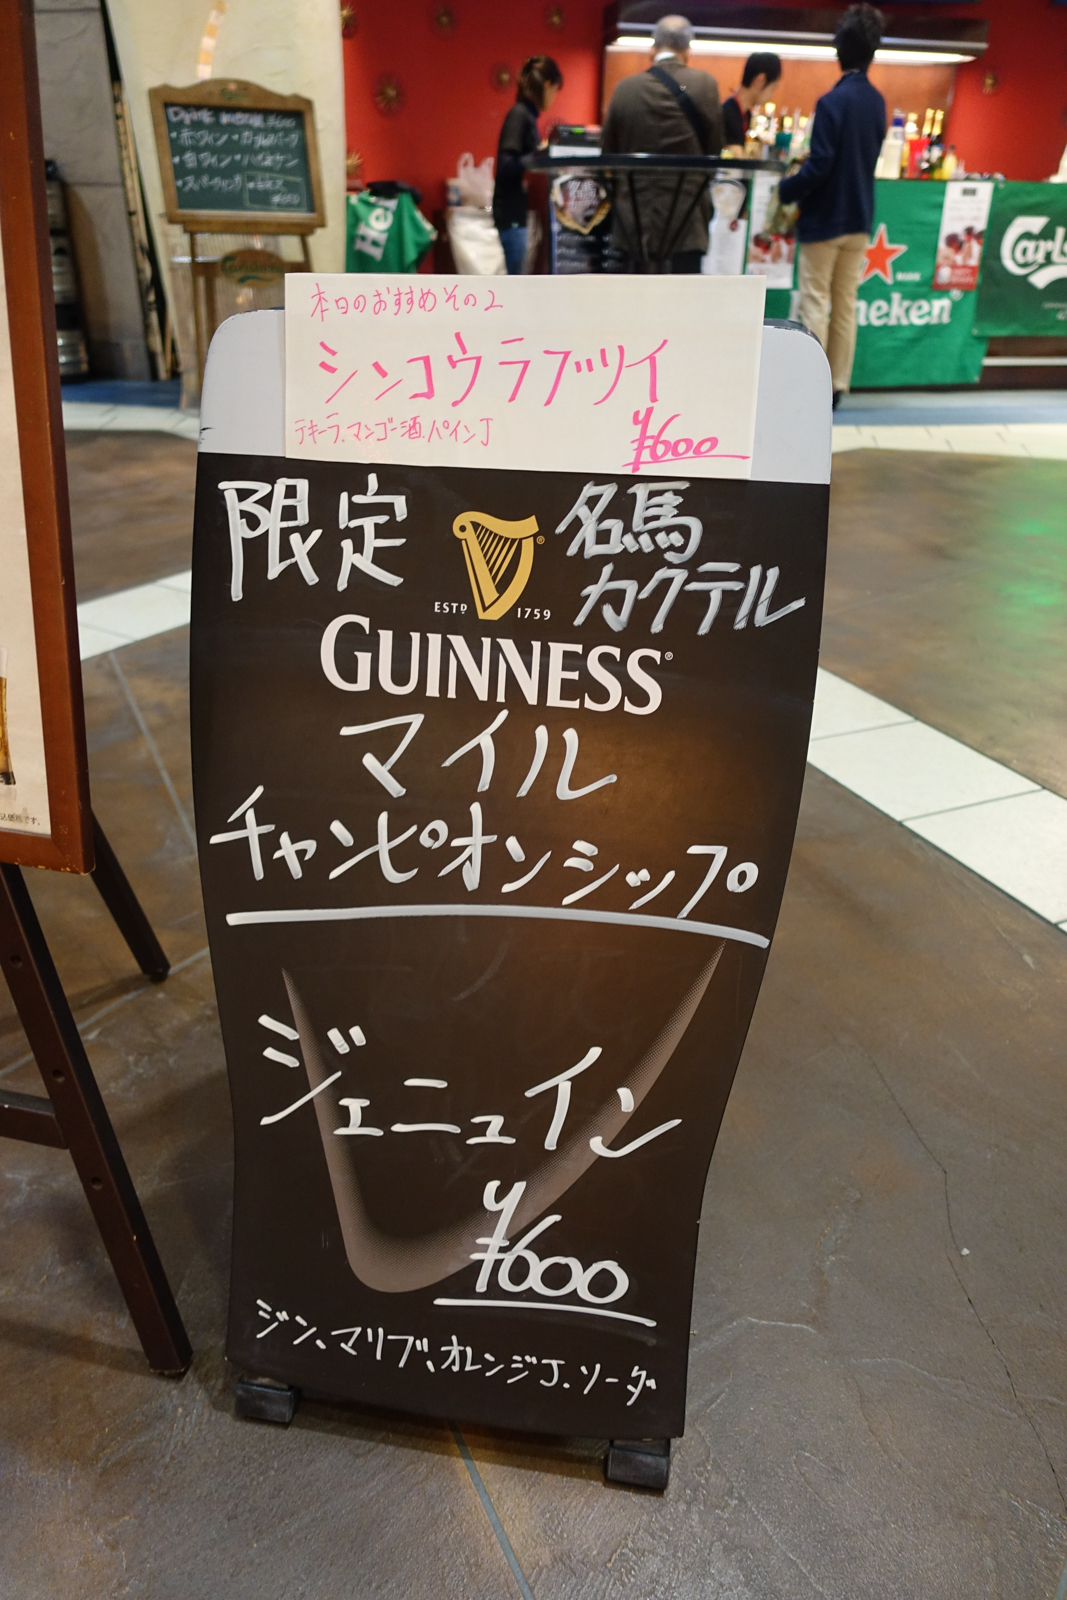 本日のおすすめその2
シンコウラブツイ
テキーラ、マンゴー酒、パインJ
¥600
限定
名馬
カクテル
ESTD 1759
GUINNESS
マイル
チャンピオンシップ
ジェニュイン
¥600
ジン、マリブ、オレンジJ、ソーダ
・赤ワイン
・白ワイン ・ハイネケン
・スパークリング
He
Heineken
Carls
込価格です。